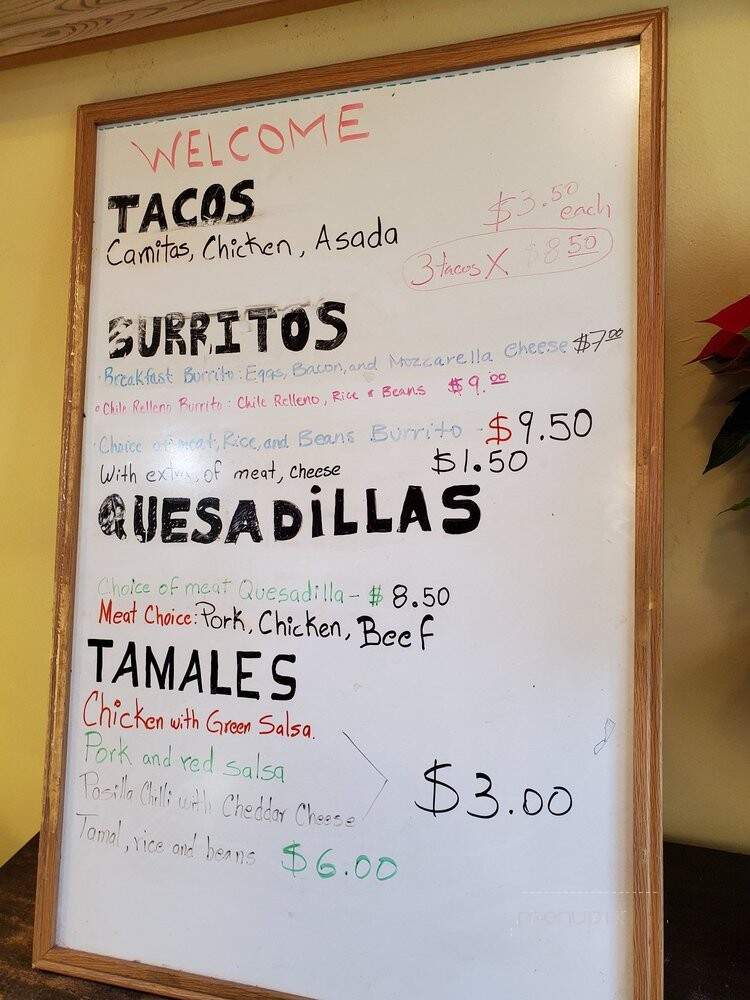 WELCOME
TACOS
Carnitas, Chicken, Asada
$3.50 each
3 tacos X $8.50
BURRITOS
Breakfast Burrito: Eggs, Bacon, and Mozzarella cheese $7.00
Chile Relleno Burrito: Chile Relleno, Rice & Beans $9.00
Choice of meat, Rice, and Beans Burrito - $9.50
With extra of meat, cheese $1.50
QUESADILLAS
Choice of meat Quesadilla - $8.50
Meat Choice: Pork, Chicken, Beef
TAMALES
Chicken with Green Salsa.
Pork and red salsa
Pasilla Chilli with Cheddar Cheese
$3.00
Tamal, rice and beans $6.00
menupix